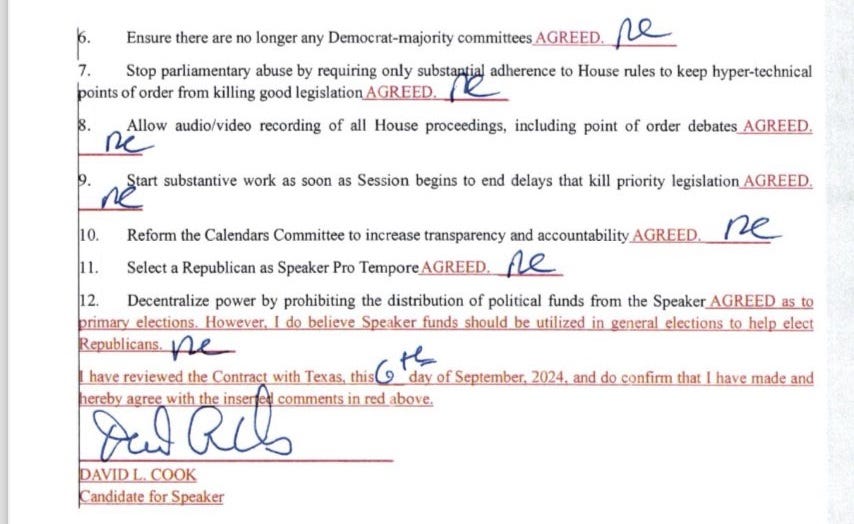 6. Ensure there are no longer any Democrat-majority committees AGREED.
7. Stop parliamentary abuse by requiring only substantial adherence to House rules to keep hyper-technical
points of order from killing good legislation AGREED.
8. Allow audio/video recording of all House proceedings, including point of order debates AGREED.
9. Start substantive work as soon as Session begins to end delays that kill priority legislation AGREED.
10. Reform the Calendars Committee to increase transparency and accountability AGREED.
11. Select a Republican as Speaker Pro Tempore AGREED.
12. Decentralize power by prohibiting the distribution of political funds from the Speaker AGREED as to
primary elections. However, I do believe Speaker funds should be utilized in general elections to help elect
Republicans.
I have reviewed the Contract with Texas, this 6th day of September, 2024, and do confirm that I have made and
hereby agree with the inserted comments in red above.
DAVID L. COOK
Candidate for Speaker